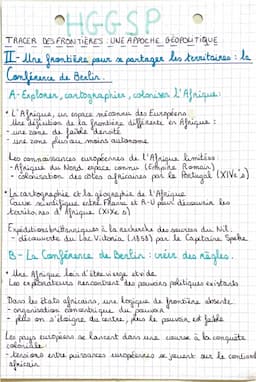 HGGSP
TRACER DES FRONTIÈRES : UNE APPOCHE GÉOPOLITIQUE
II - Une frontière pour se partager les territoires : la
Conférence de Berlin.
A - Explorer, cartographier, coloniser l'Afrique:
• L'Afrique, un espace méconnu des Européens
Une définition de la frontière différente en Afrique :
- une zone de faible densité
- une zone plus ou moins autonome.
Les connaissances européennes de l'Afrique limitées :
- Afrique du Nord espace connu (Empire Romain)
- colonisation des côtes africaines par le Portugal (XIVe s)
• La cartographie et la géographie de l'Afrique
Course scientifique entre France et R-U pour découvrir les
territoires d'Afrique (XIXe s)
Expéditions britanniques à la recherche des sources du Nil.
- découverte du Lac Victoria (1858) par le Capitaine Speke.
B - La Conférence de Berlin : créer des règles.
• Une Afrique loin d'être vierge et vide
Les explorateurs rencontrent des pouvoirs politiques existants
Dans les états africains, une logique de frontière absente :
- organisation concentrique du pouvoir
- plus on s'éloigne du centre, plus le pouvoir est faible
Les pays européens se lancent dans une course à la conquête
coloniale
- tensions entre puissances européennes se jouent sur le continent
africain.